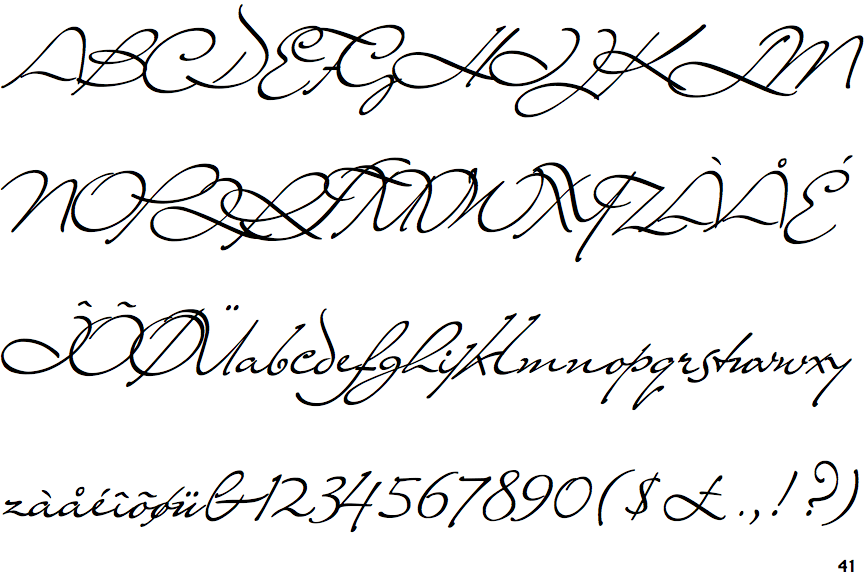 ABCDEFGHIJKLM
NOPQRSTUVWXYZÀÅÉ
ÎÕØÜabcdefghijklmnopqrstuvwxy
zàåéîõøü&1234567890($£.,!?)
41